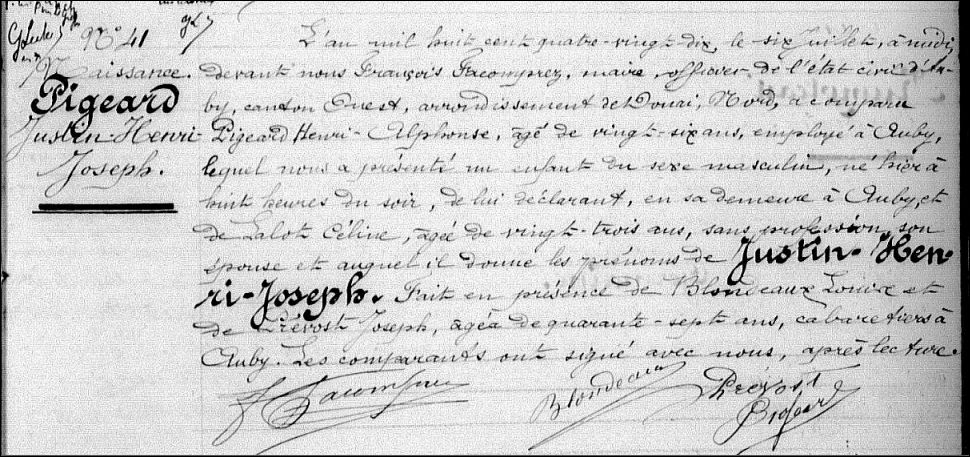 N° 41
Naissance.
Pigeard
Justin-Henri-
Joseph.
L'an mil huit cent quatre-vingt dix, le six Juillet, à midi,
devant nous François Facomprez, maire, officier de l'état civil d'Au-
by, canton Ouest, arrondissement de Douai, Nord, a comparu
Pigeard Henri-Alphonse, âgé de vingt-six ans, employé à Auby,
lequel nous a présenté un enfant du sexe masculin, né hier à
huit heures du soir, de lui déclarant, en sa demeure à Auby, et
de Lalot Céline, âgée de vingt-trois ans, sans profession, son
épouse et auquel il donne les prénoms de Justin-Hen-
ri-Joseph. Fait en présence de Blondeaux Louis et
de Prévost Joseph, âgés de quarante-sept ans, cabaretiers à
Auby. Les comparants ont signé avec nous, après lecture.
Blondeaux Prévost
Pigeard